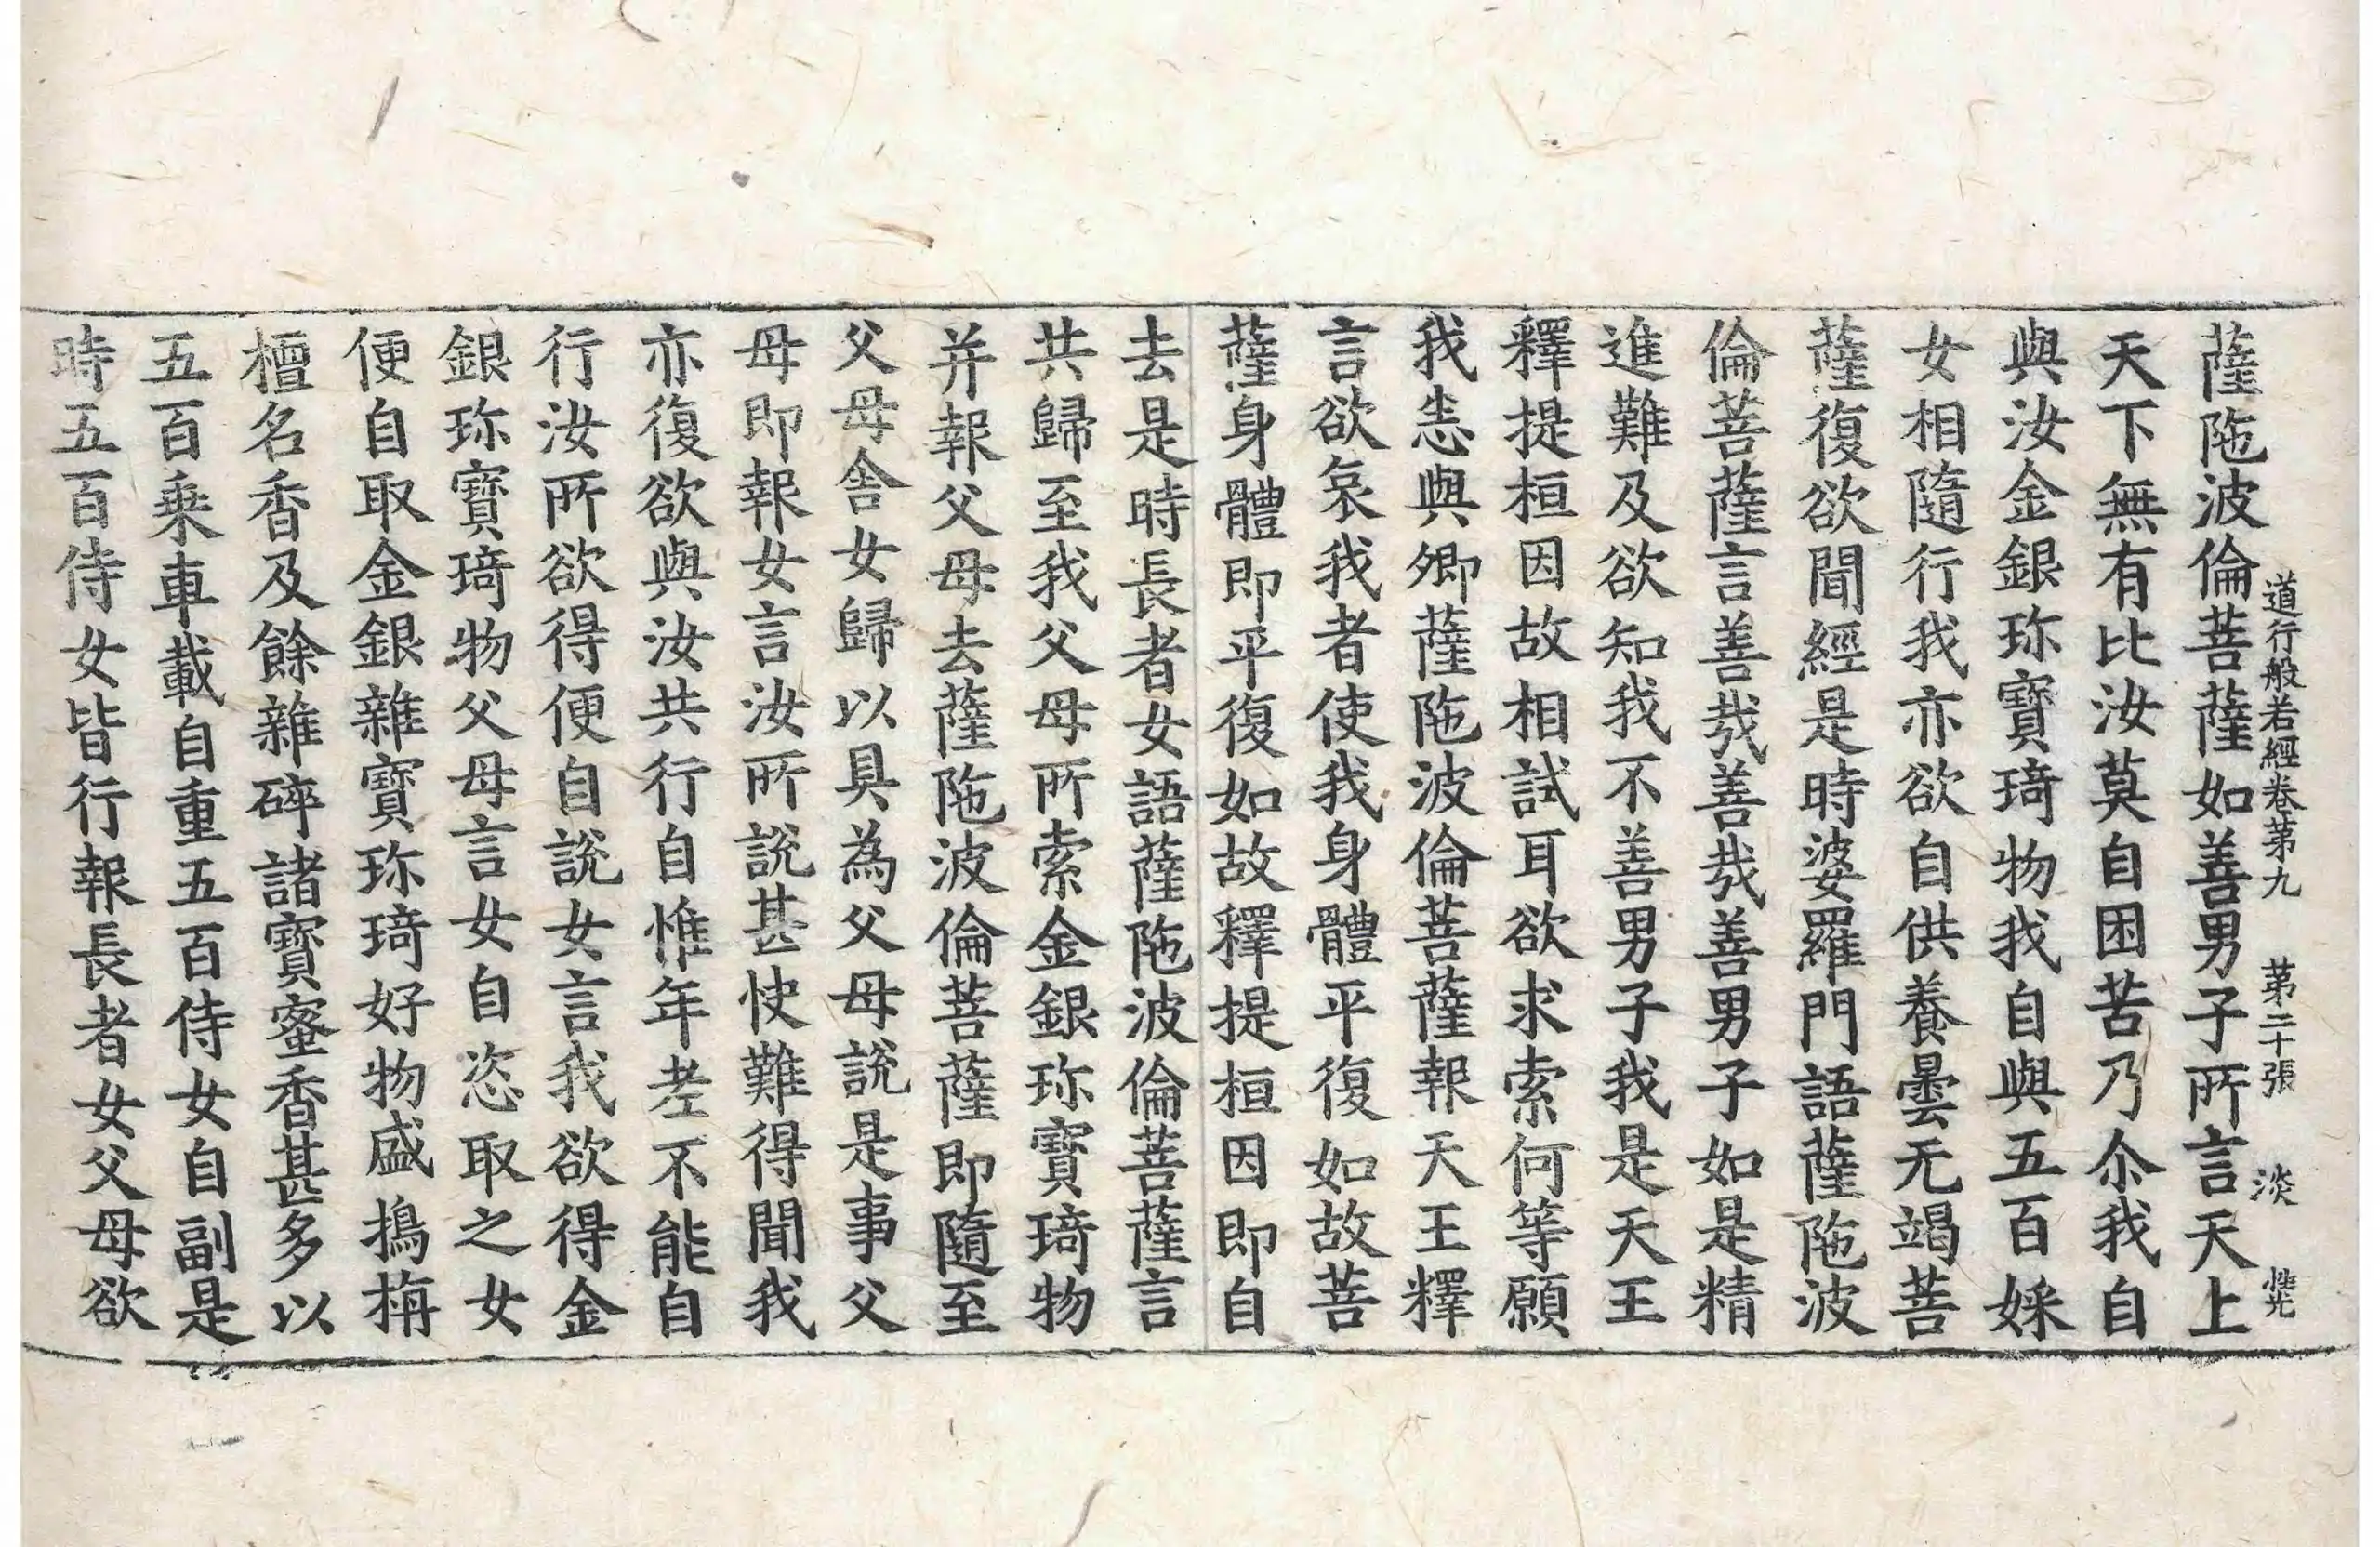 道行般若經卷第九　第二十張　淡
薩陁波倫菩薩如善男子所言天上
天下無有比汝莫自困苦乃尒我自
與汝金銀珎寶琦物我自與五百婇
女相隨行我亦欲自供養曇无竭菩
薩復欲聞經是時婆羅門語薩陁波
倫菩薩言善哉善哉善男子如是精
進難及欲知我不善男子我是天王
釋提桓因故相試耳欲求索何等願
我恚與卿薩陁波倫菩薩報天王釋
言欲哀我者使我身體平復如故菩
薩身體即平復如故釋提桓因即自
去是時長者女語薩陁波倫菩薩言
共歸至我父母所索金銀珎寶琦物
并報父母去薩陁波倫菩薩即隨至
父母舍女歸以具為父母說是事父
母即報女言汝所說甚快難得聞我
亦復欲與汝共行自惟年老不能自
行汝所欲得便自說女言我欲得金
銀珎寶琦物父母言女自恣取之女
便自取金銀雜寶珎琦好物盛搗栴
檀名香及餘雜碎諸寶蜜香甚多以
五百乘車載自重五百侍女自副是
時五百侍女皆行報長者女父母欲